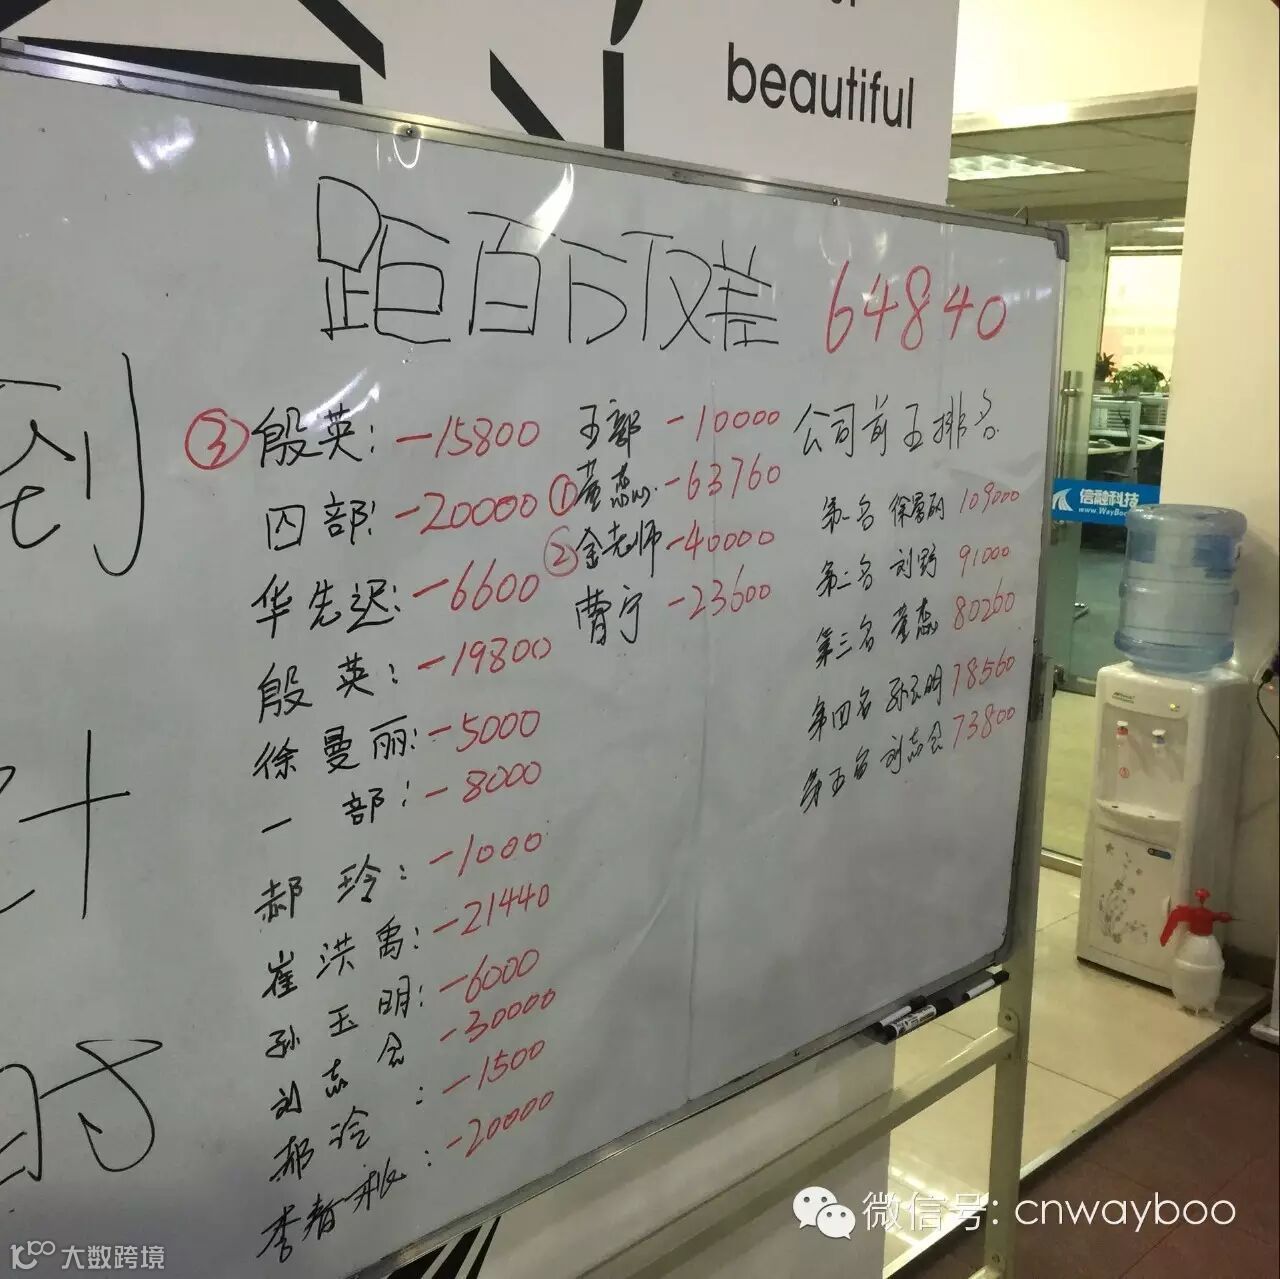 beautiful
距百万仅差 64840
③ 殷英: -15800
四部: -20000
华先迟: -6600
殷英: -19800
徐曼丽: -5000
一部: -8000
郝玲: -1000
崔洪禹: -21440
孙玉明: -6000
刘志会 -30000
郝泠: -1500
李春: -20000
王部 -10000
① 董燕 -63760
② 金老师 -40000
曹宁 -23600
公司前五排名
第一名 徐曼丽 109000
第二名 刘野 91000
第三名 董燕 80260
第四名 孙玉明 78560
第五名 刘志会 73800
到
计
时
信融科技
www.WayBoo
微信号: cnwayboo
大数跨境